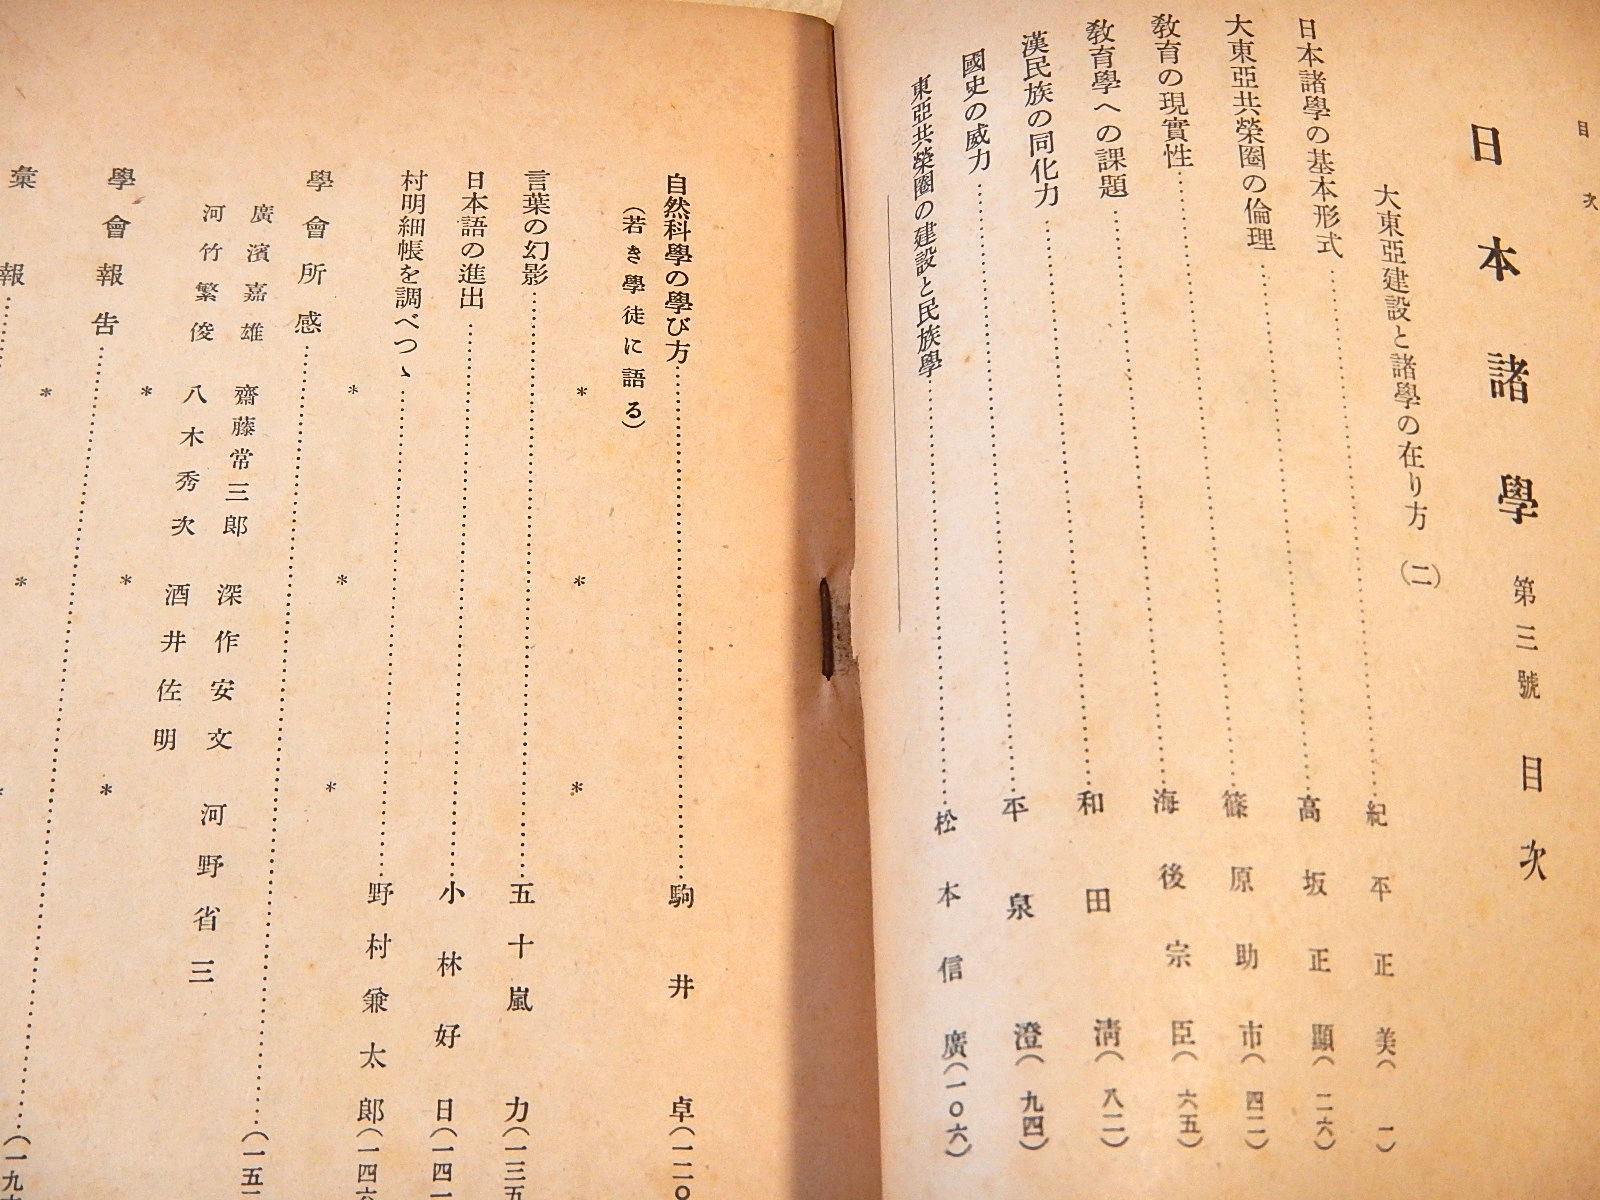 目次
日本諸學 第三號 目次
大東亞建設と諸學の在り方(二)
日本諸學の基本形式……紀平正美(一)
大東亞共榮圈の倫理……高坂正顯(二六)
敎育の現實性……篠原助市(四二)
敎育學への課題……海後宗臣(六五)
漢民族の同化力……和田淸(八二)
國史の威力……平泉澄(九四)
東亞共榮圈の建設と民族學……松本信廣(一〇六)
自然科學の學び方……駒井卓(一二〇
(若き學徒に語る)
* * *
言葉の幻影……五十嵐力(一三五
日本語の進出……小林好日(一四一
村明細帳を調べつゝ……野村兼太郎(一四六
* * *
學會所感……(一五一
廣濱嘉雄 齋藤常三郎 深作安文 河野省三
河竹繁俊 八木秀次 酒井佐明
* * *
學會報告……(一九
* * *
彙報……